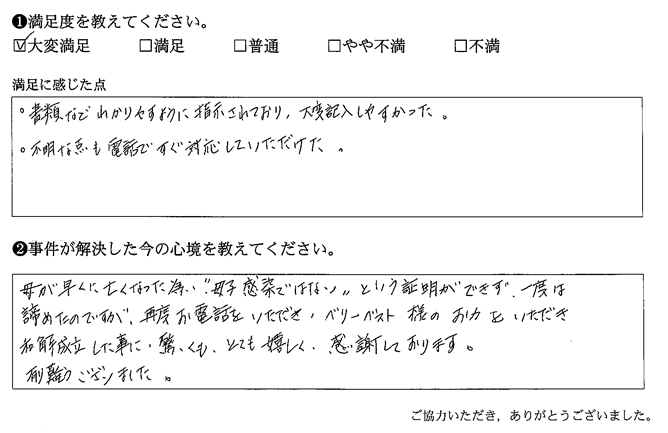 ❶満足度を教えてください。
☑大変満足 □満足 □普通 □やや不満 □不満
満足に感じた点
。書類などわかりやすように指示されており、大変記入しやすかった。
。不明な点も電話ですぐ対応していただけた。
❷事件が解決した今の心境を教えてください。
母が早くに亡くなった為、"母子感染ではない"という証明ができず、一度は
諦めたのですが、再度お電話をいただき、ベリーベスト様のお力をいただき
和解成立した事に、驚くも、とても嬉しく、感謝しております。
有難うございました。
ご協力いただき，ありがとうございました。